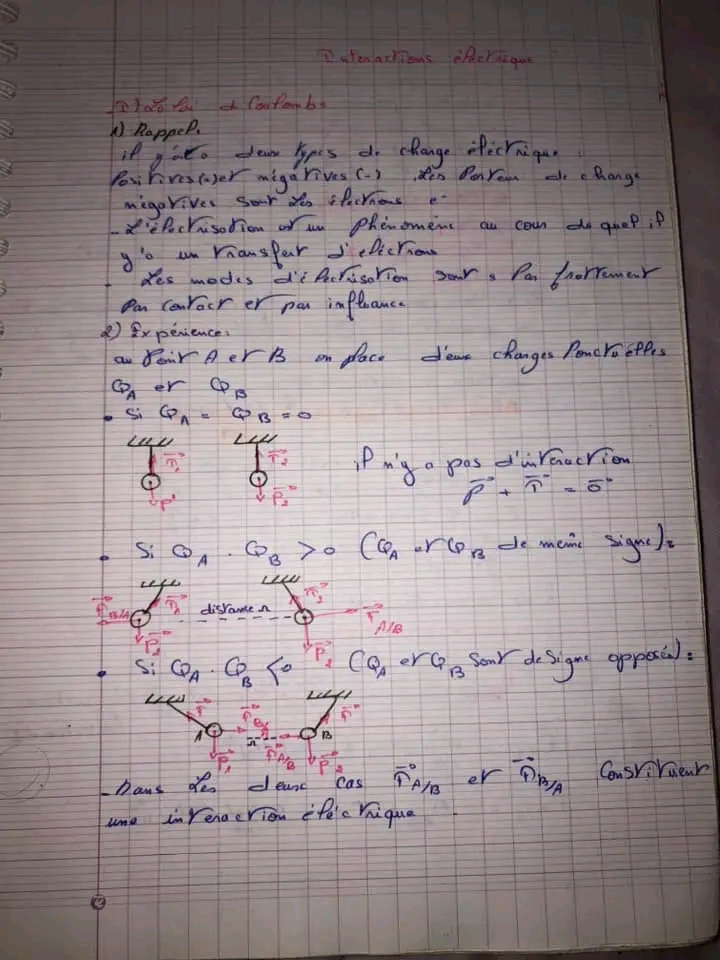 Interactions éléctrique
I) La loi d Coulombs
1) Rappel:
il y'a deux types de charge éléctrique :
Positives(+) et négatives (-) . Les Porteur de charge
négatives sont les électrons e-
- L'électrisation et un phénoméne au cour de quel il
y'a un transfert d'electrons
- Les modes d'électrisation sont : Par frottement
Par contact et par influence.
2) Expérience:
au Point A et B on place deux charges Ponctuelles
Q_A et Q_B
• Si Q_A = Q_B = 0
T⃗₁ T⃗₂
il n'y a pas d'interaction
P⃗ P⃗₂
P⃗ + T⃗ = 0⃗
• Si Q_A . Q_B > 0 (Q_A et Q_B de même signe):
F⃗ B/A T⃗₁ distance r T⃗₂ F⃗ A/B
P⃗₂ P⃗₂
• Si Q_A . Q_B < 0 (Q_A et Q_B sont de signe opposée):
T⃗ T⃗
A F⃗ B/A B
P⃗₁ r F⃗ A/B P⃗₂
- Dans les deux cas F⃗ A/B et F⃗ B/A Constituent
une interaction éléctrique